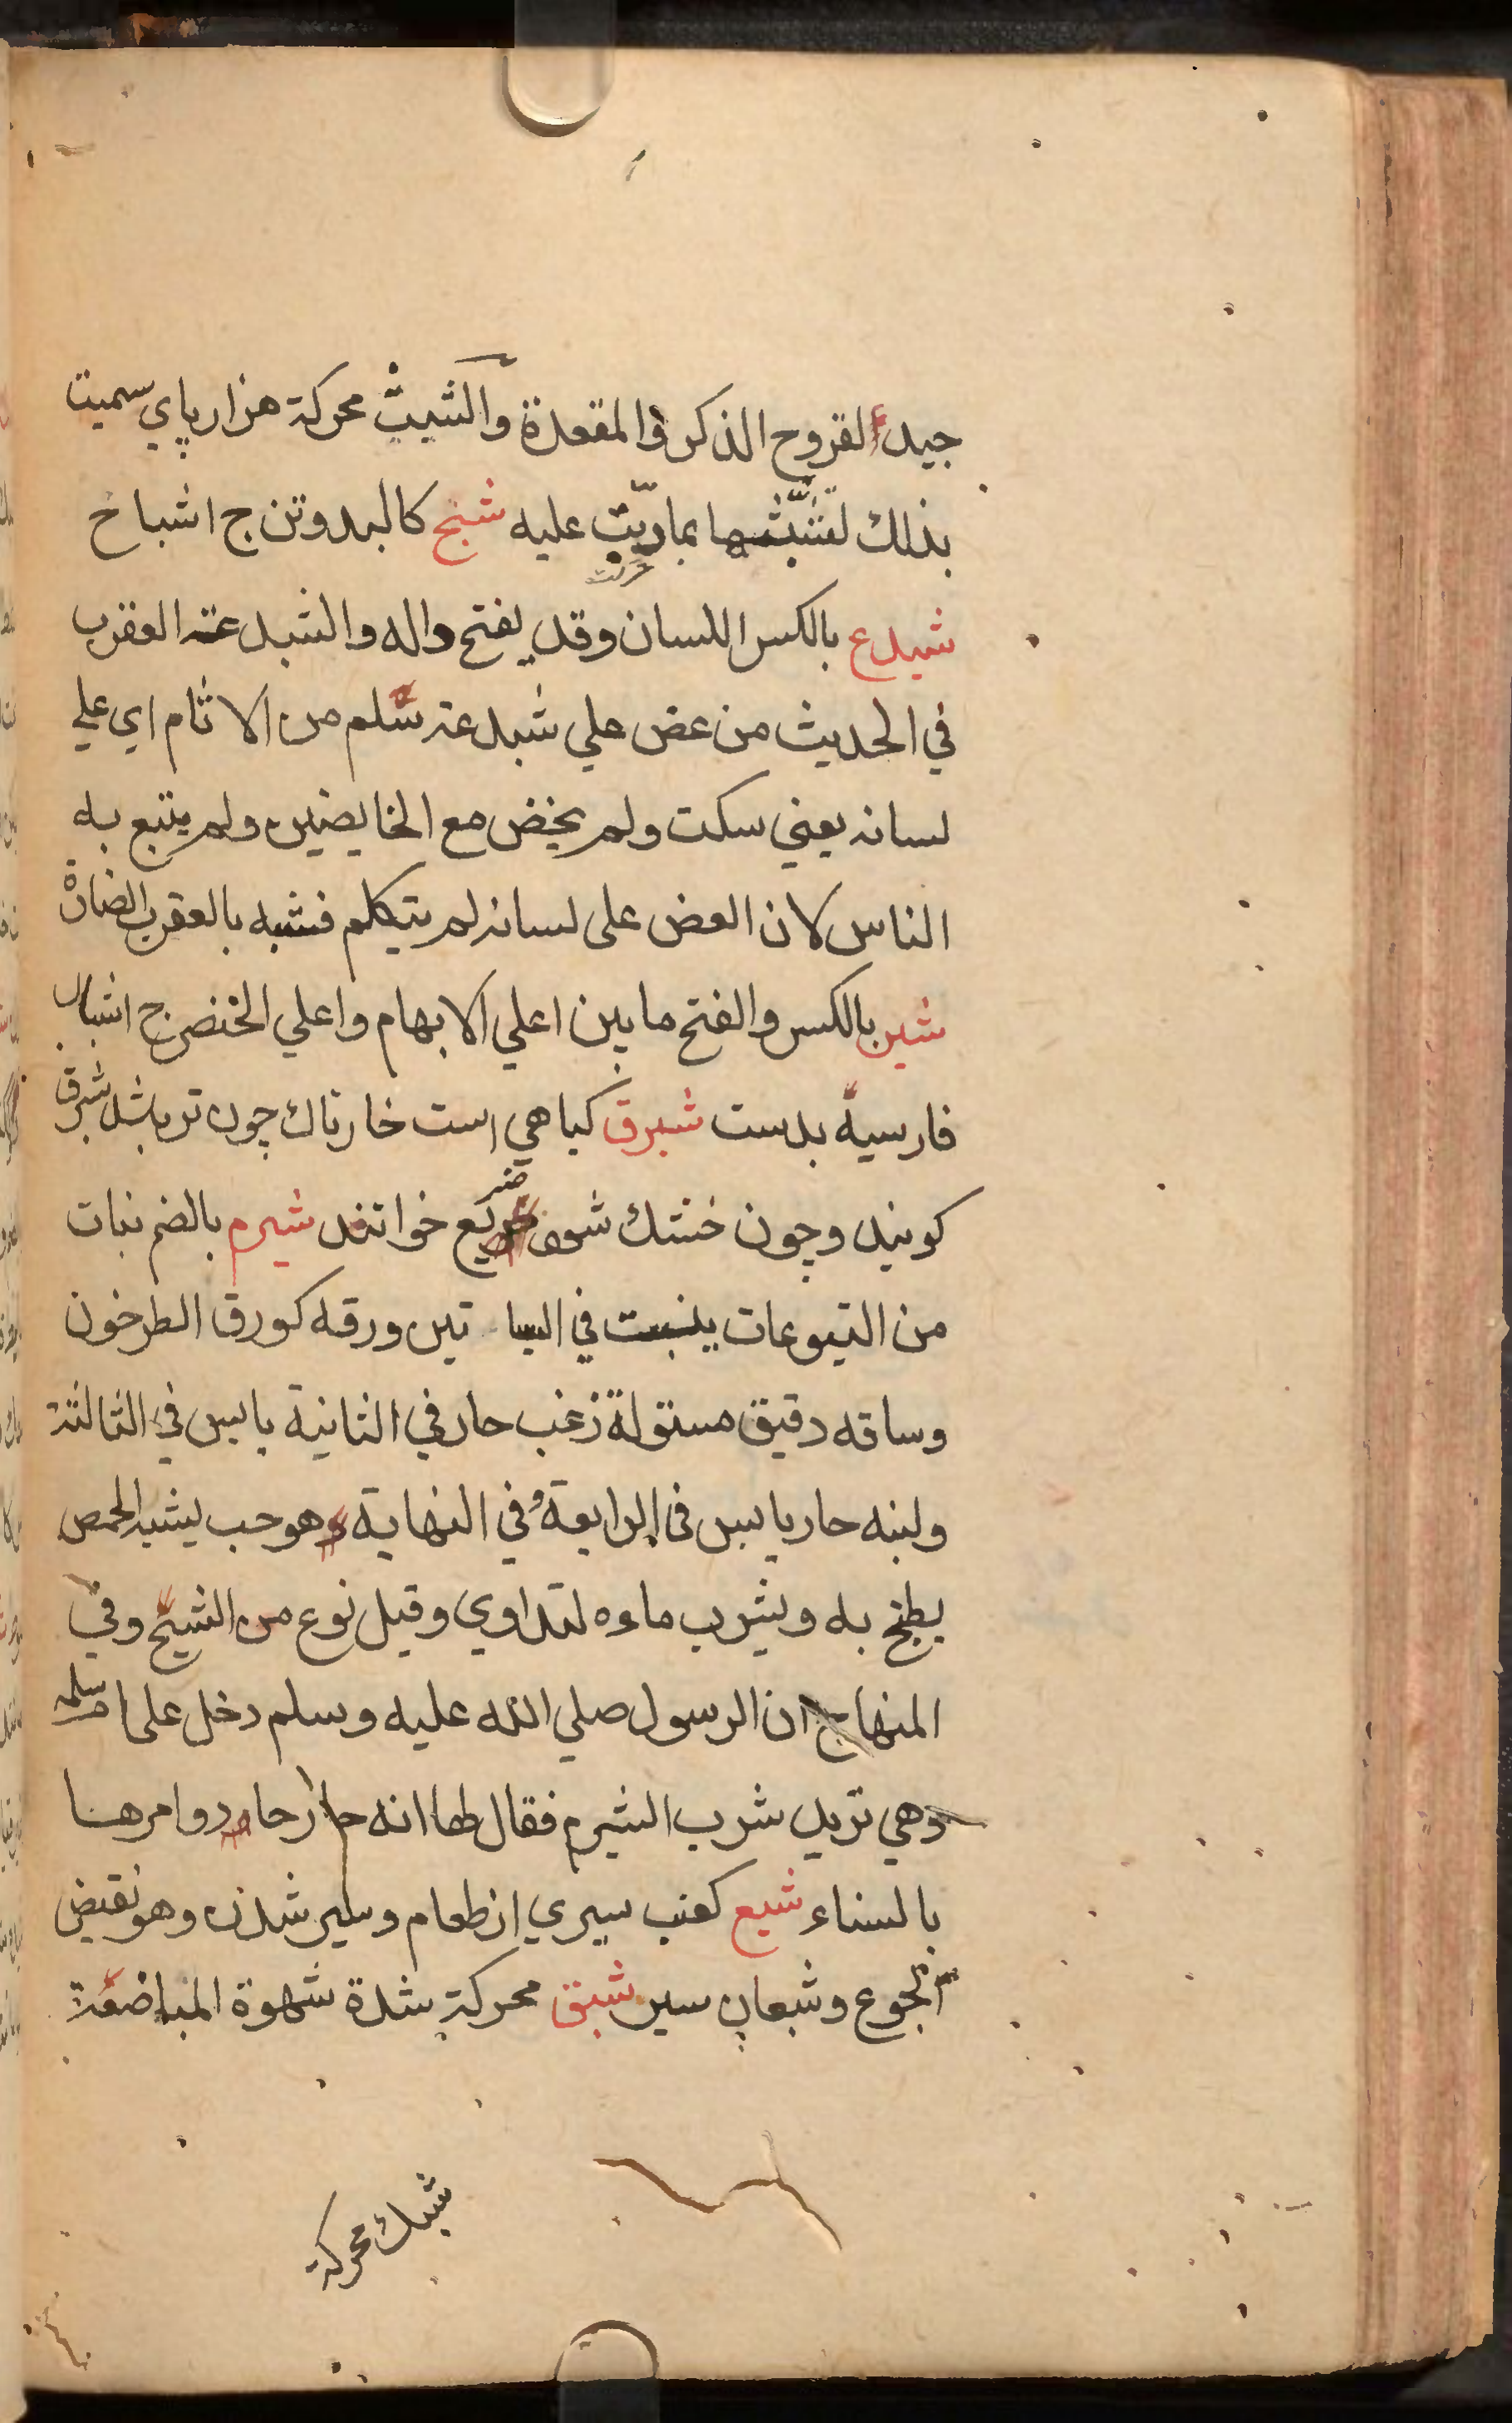 جيد لقروح الذكر والمقعدة والشبث محركة هزارپاي سميت
بذلك لتشبثها بما دبّت عليه شبح كالبدوتن ج اشباح
شبدع بالكسر اللسان وقد يفتح داله والشبدعة العقرب
في الحديث من عض علي شبدعه سلم من الاثام اي علي
لسانه يعني سكت ولم يخض مع الخايضين ولم يتبع به
الناس لان العض على لسانه لم يتكلم فشبه بالعقرب الضارة
شبر بالكسر والفتح ما بين اعلي الابهام واعلي الخنصر ج اشبار
فارسية بدست شبرق كياهي است خارناك چون تر باشد شبرق
كويند وچون خشك شود ضريع خوانند شبرم بالضم نبات
من التيوعات ينبت في البساتين ورقه كورق الطرخون
وساقه دقيق مستو له زغب حار في الثانية يابس في الثالثة
ولبنه حار يابس في الرابعة وفي النهاية هو حب يشبه الحمص
يطبخ به ويشرب ماءه لتداوي وقيل نوع من الشيح وفي
المنهاج ان الرسول صلي الله عليه وسلم دخل على ام سلمه
وهي تريد شرب الشبرم فقال لها انه حار حار وامرها
بالسناء شبع كعنب سيري از طعام وسير شدن وهو نقيض
الجوع وشبعان سير شبق محركة شدة شهوة المباضعة
شبك محركة